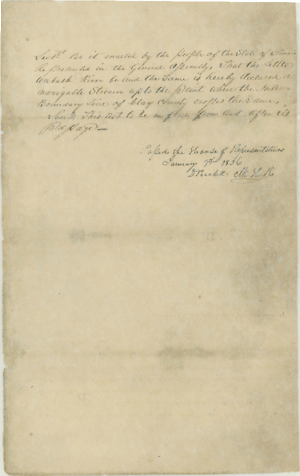 Sec 1st Be it enacted by the People of the State of
Represented in the General Assembly, That the Little
Wabash River be and the Same is hereby declared a
navigable Stream up to the point where the
Boundary Line of Clay County crosses the Same.
Sec 2 This act to be in force from and after its
passage
Passed the House of Representatives
January 9th 1836